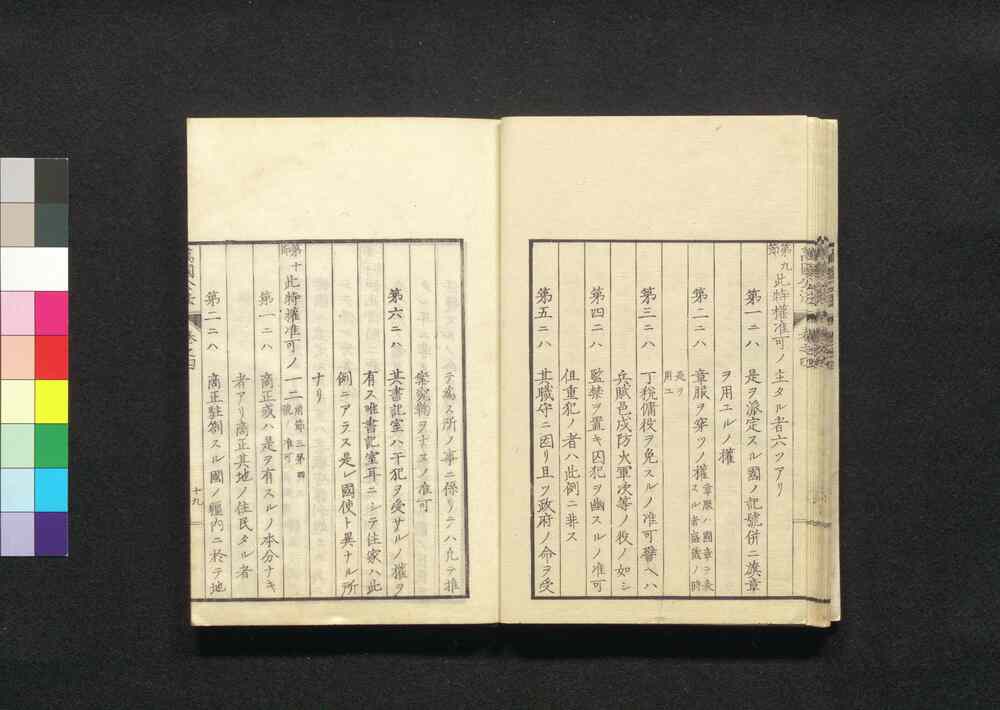 第九節 此特權准可ノ主タル者六ツアリ
第一ニハ 是ヲ派定スル國ノ記號併ニ旗章
ヲ用エルノ權
第二ニハ 章服ヲ穿ツノ權 章服ハ國章ヲ表スル者盛儀ノ時是ヲ用ユ
第三ニハ 丁稅傭役ヲ免スルノ准可譬ヘハ
兵賦邑戍防火軍次等ノ役ノ如シ
第四ニハ 監禁ヲ置キ囚犯ヲ幽スルノ准可
但重犯ノ者ハ此例ニ非ス
第五ニハ 其職守ニ因リ且ツ政府ノ命ヲ受
テ爲ス所ノ事ニ係リテハ凢テ推
ノ准可
第六ニハ 其書記室ハ干犯ヲ受サルノ權ヲ
有ス唯書記室耳ニシテ住家ハ此
例ニアラス是レ國使ト異ナル所
ナリ
第十節 此特權准可ノ一二 前節三第四號ノ准可
第一ニハ 商正或ハ是ヲ有スルノ本分ナキ
者アリ商正其地ノ住民タル者
第二ニハ 商正駐劄スル國ノ疆內ニ於テ地
萬國公法
卷之四
十九